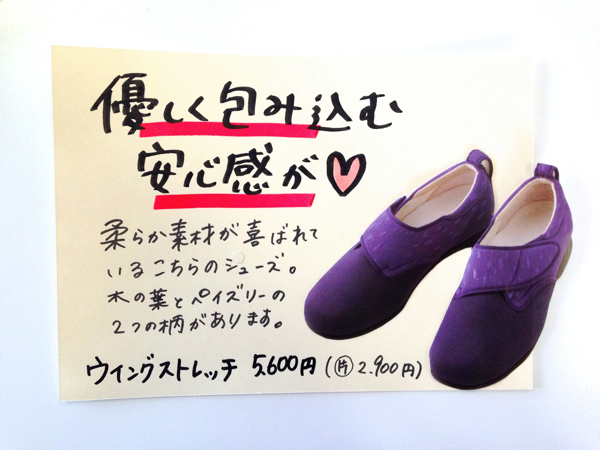 優しく包み込む
安心感が♥
柔らか素材が喜ばれて
いるこちらのシューズ。
木の葉とペイズリーの
2つの柄があります。
ウイングストレッチ 5,600円(㊐2.900円)